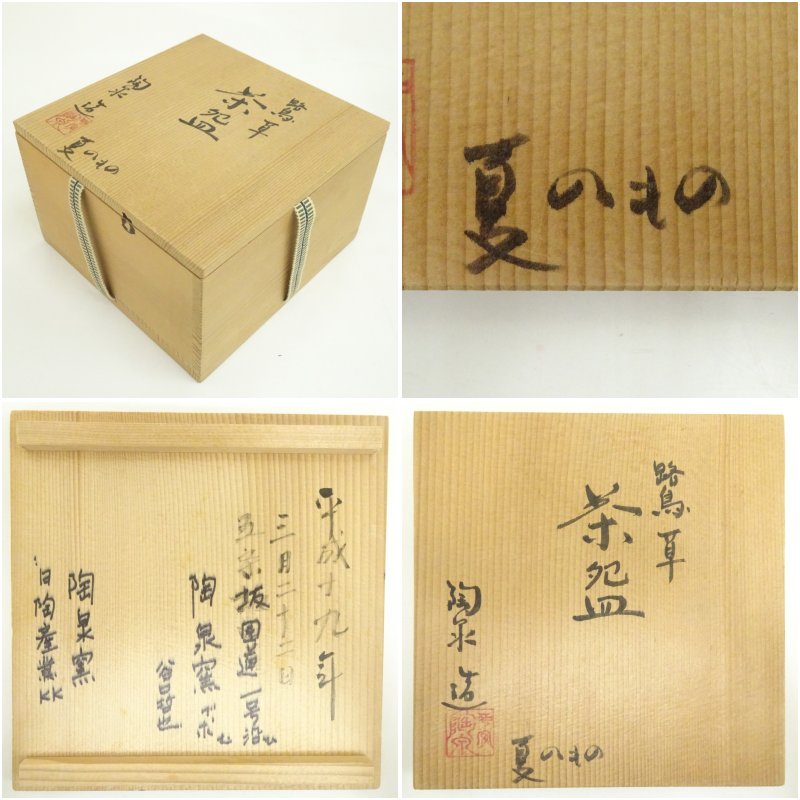 鷺草
茶盌
陶泉造
夏のもの
夏のもの
平成十九年
三月二十二日
五条坂国道一号沿い
陶泉窯
谷口哲也
陶泉窯
日陶産業KK
鷺草
茶盌
陶泉造
陶泉
夏のもの